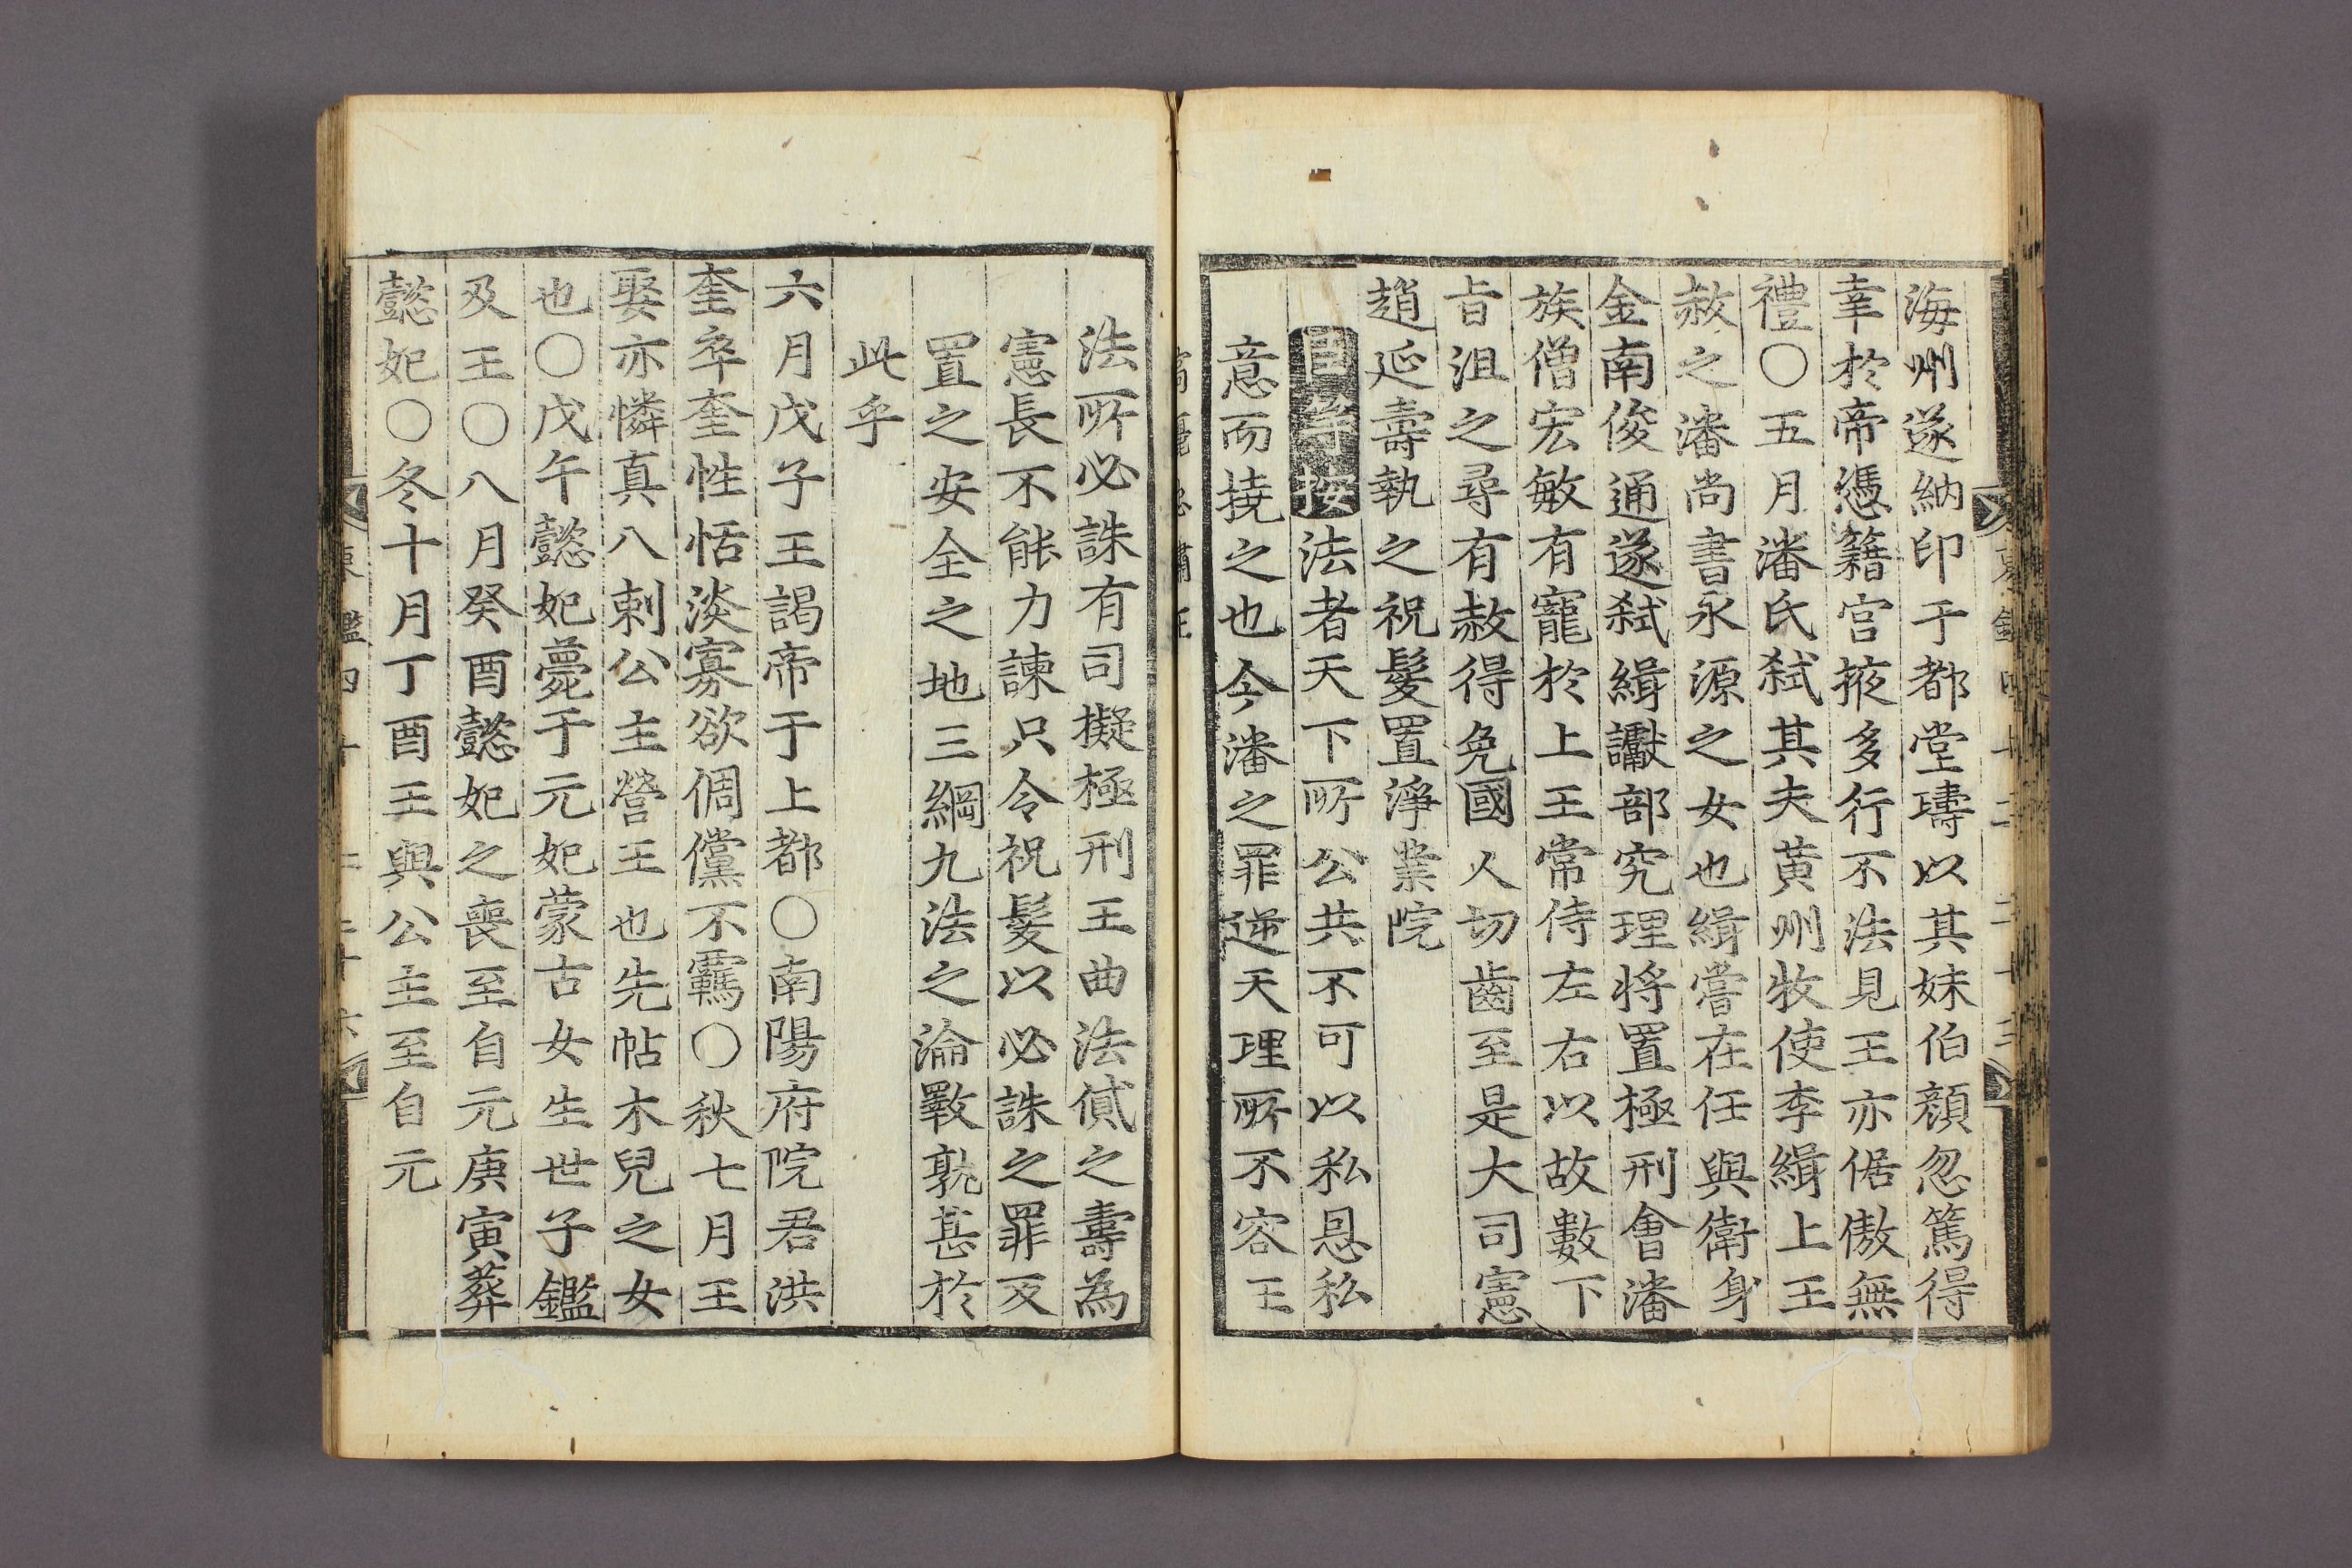 海州遂納印于都堂璹以其妹伯顔忽篤得
幸於帝憑籍宫掖多行不法見王亦倨傲無
禮〇五月潘氏弑其夫黄州牧使李緝上王
赦之潘尚書永源之女也緝嘗在任與衛身
金南俊通遂弑緝讞部究理將置極刑會潘
族僧宏敏有寵於上王常侍左右以故數下
旨沮之尋有赦得免國人切齒至是大司憲
趙延壽執之祝髮置淨業院
臣等按法者天下所公共不可以私恩私
意而撓之也今潘之罪逆天理所不容王
法所必誅有司擬極刑王曲法貸之壽為
憲長不能力諫只令祝髮以必誅之罪反
置之安全之地三綱九法之淪斁孰甚於
此乎
六月戊子王謁帝于上都〇南陽府院君洪
奎卒奎性恬淡寡欲倜儻不羈〇秋七月王
娶亦憐真八剌公主營王也先帖木兒之女
也〇戊午懿妃薨于元妃蒙古女生世子鑑
及王〇八月癸酉懿妃之喪至自元庚寅葬
懿妃〇冬十月丁酉王與公主至自元